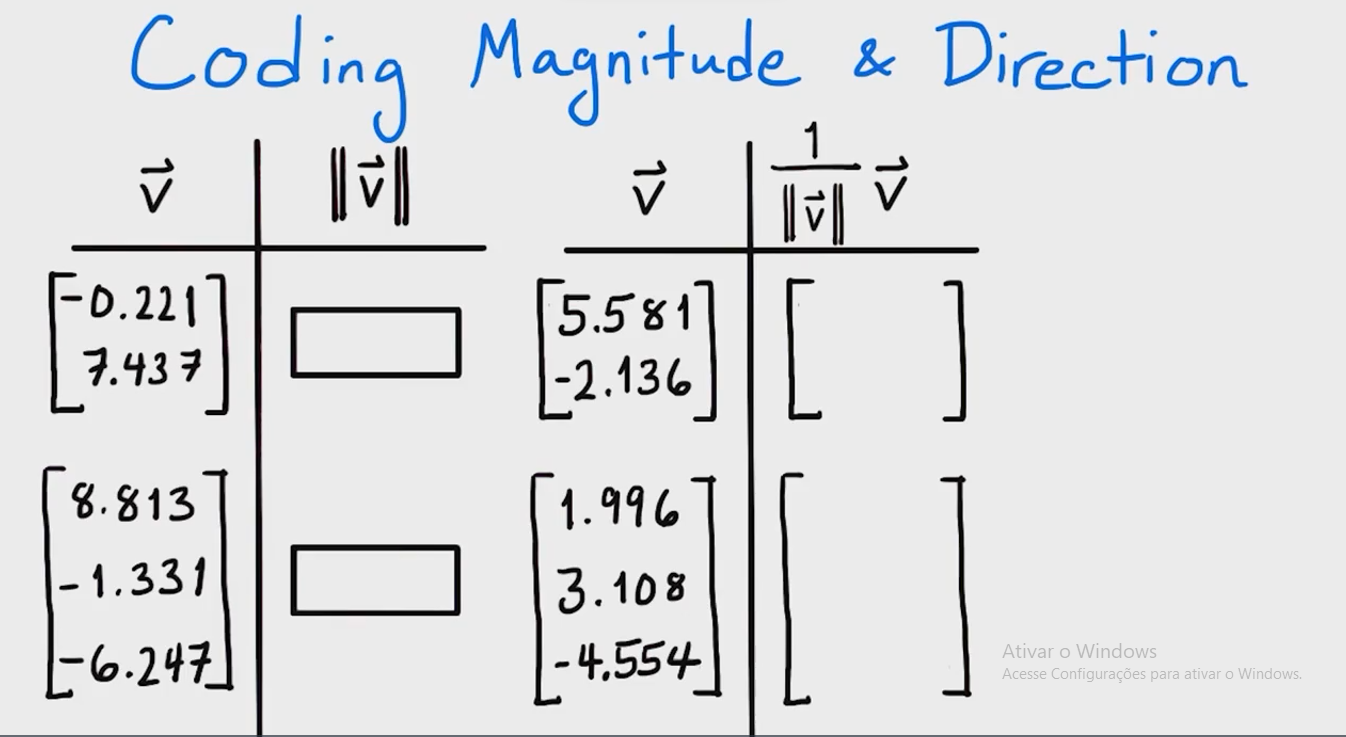 Coding Magnitude & Direction
v⃗ ‖v⃗‖ v⃗ 1/‖v⃗‖ v⃗
-0.221
7.437
5.581
-2.136
8.813
-1.331
-6.247
1.996
3.108
-4.554
Ativar o Windows
Acesse Configurações para ativar o Windows.